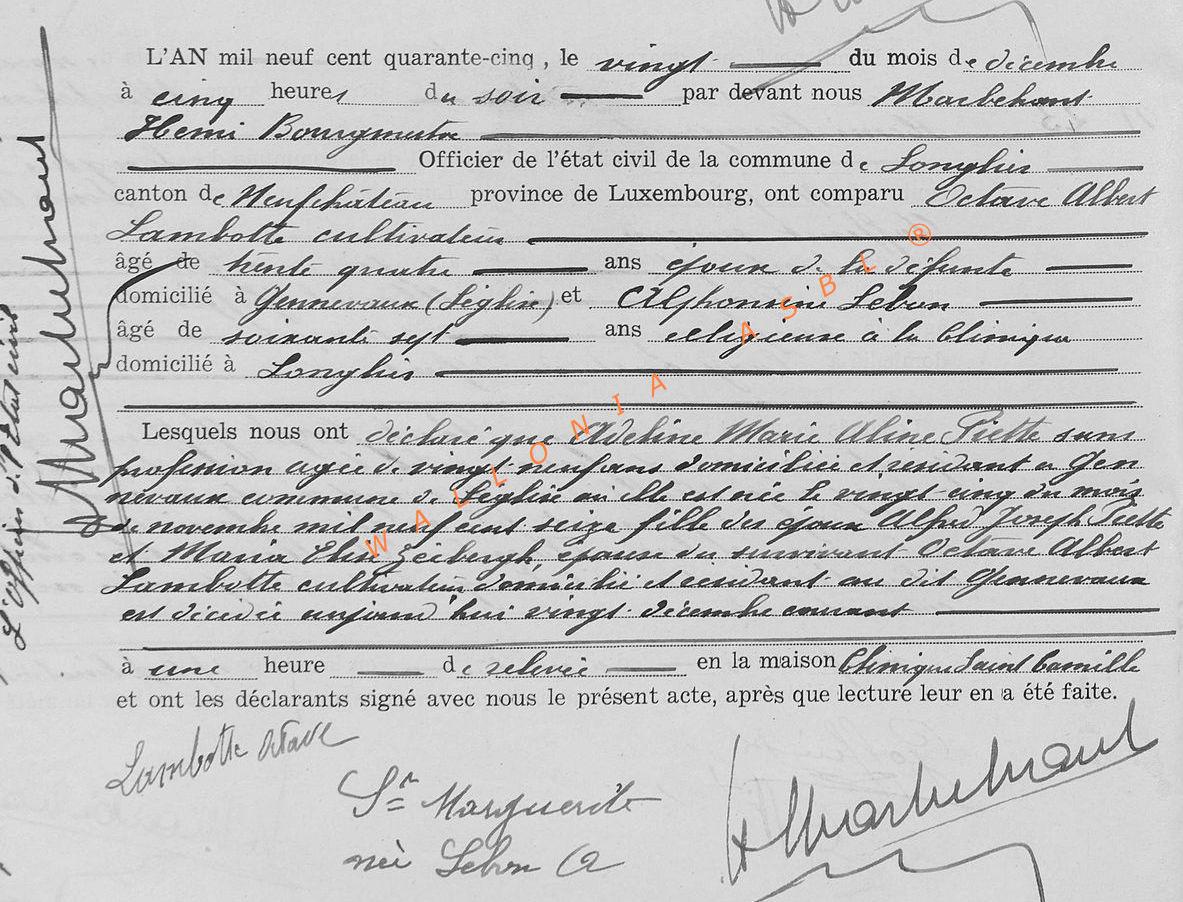 L'AN mil neuf cent quarante-cinq, le vingt du mois de décembre
à cinq heures du soir par devant nous Marbehant
Henri Bourgmestre
Officier de l'état civil de la commune de Longlier
canton de Neufchâteau province de Luxembourg, ont comparu Octave Albert
Lambotte cultivateur
âgé de trente quatre ans époux de la défunte
domicilié à Gennevaux (Léglise) et Alphonsine Lebon
âgé de soixante sept ans religieuse à la Clinique
domicilié à Longlier
Lesquels nous ont déclaré que Adeline Marie Aline Piette sans
profession agée de vingt neuf ans domiciliée et résidant à Gen
nevaux commune de Léglise où elle est née le vingt-cinq du mois
de novembre mil neuf cent seize fille des époux Alfred Joseph Piette
et Maria Elise, épouse du survivant Octave Albert
Lambotte cultivateur domicilié et résidant au dit Gennevaux
est décédée aujourd'hui vingt décembre courant
à une heure de relevée en la maison Clinique Saint Camille
et ont les déclarants signé avec nous le présent acte, après que lecture leur en a été faite.
Lambotte Octave
Sr Marguerite
née Lebon A
H Marbehant
L'Officier de l'Etat civil
H Marbehant
WALLONIA ASBL ®